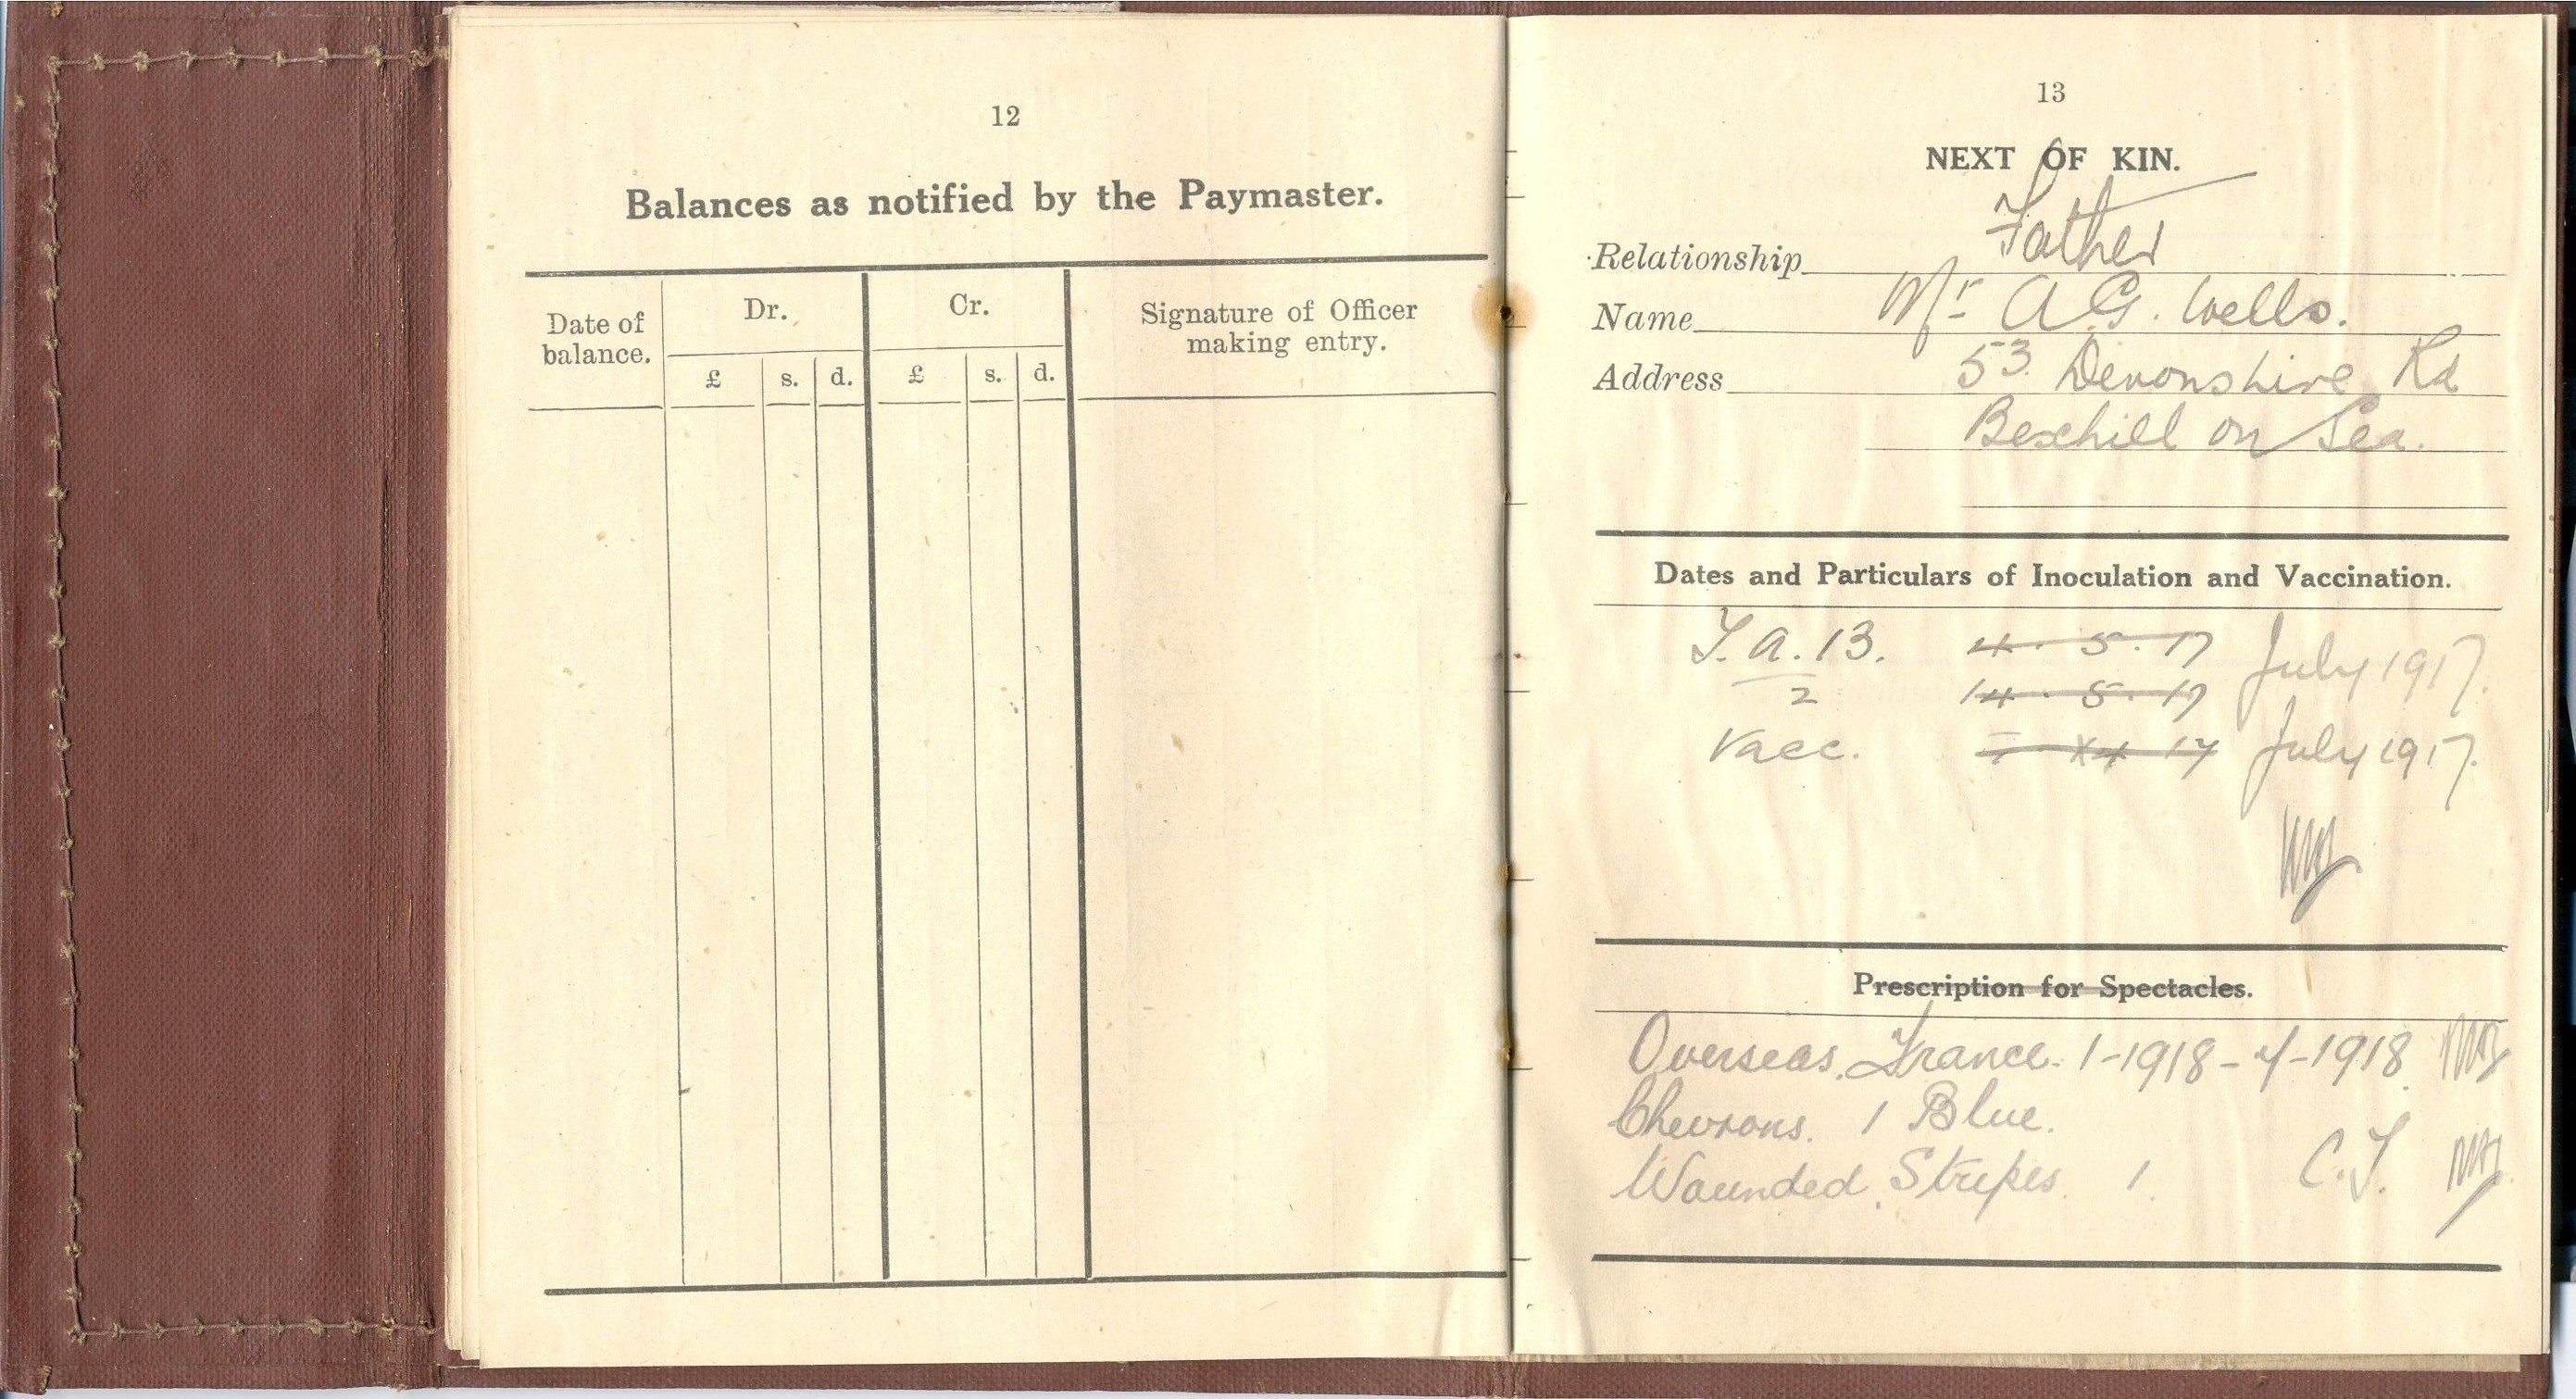 12
Balances as notified by the Paymaster.
Date of balance.
Dr.
Cr.
Signature of Officer making entry.
£ s. d. £ s. d.
13
NEXT OF KIN.
Relationship Father
Name Mr A G. Wells.
Address 53 Devonshire Rd
Bexhill on Sea.
Dates and Particulars of Inoculation and Vaccination.
T.a.13. 4. 5. 17 July 1917.
2 14. 5. 17
Vacc. July 1917.
Prescription for Spectacles.
Overseas. France. 1-1918-4-1918
Chevrons. 1 Blue.
Wounded. Stripes. 1. C.T.